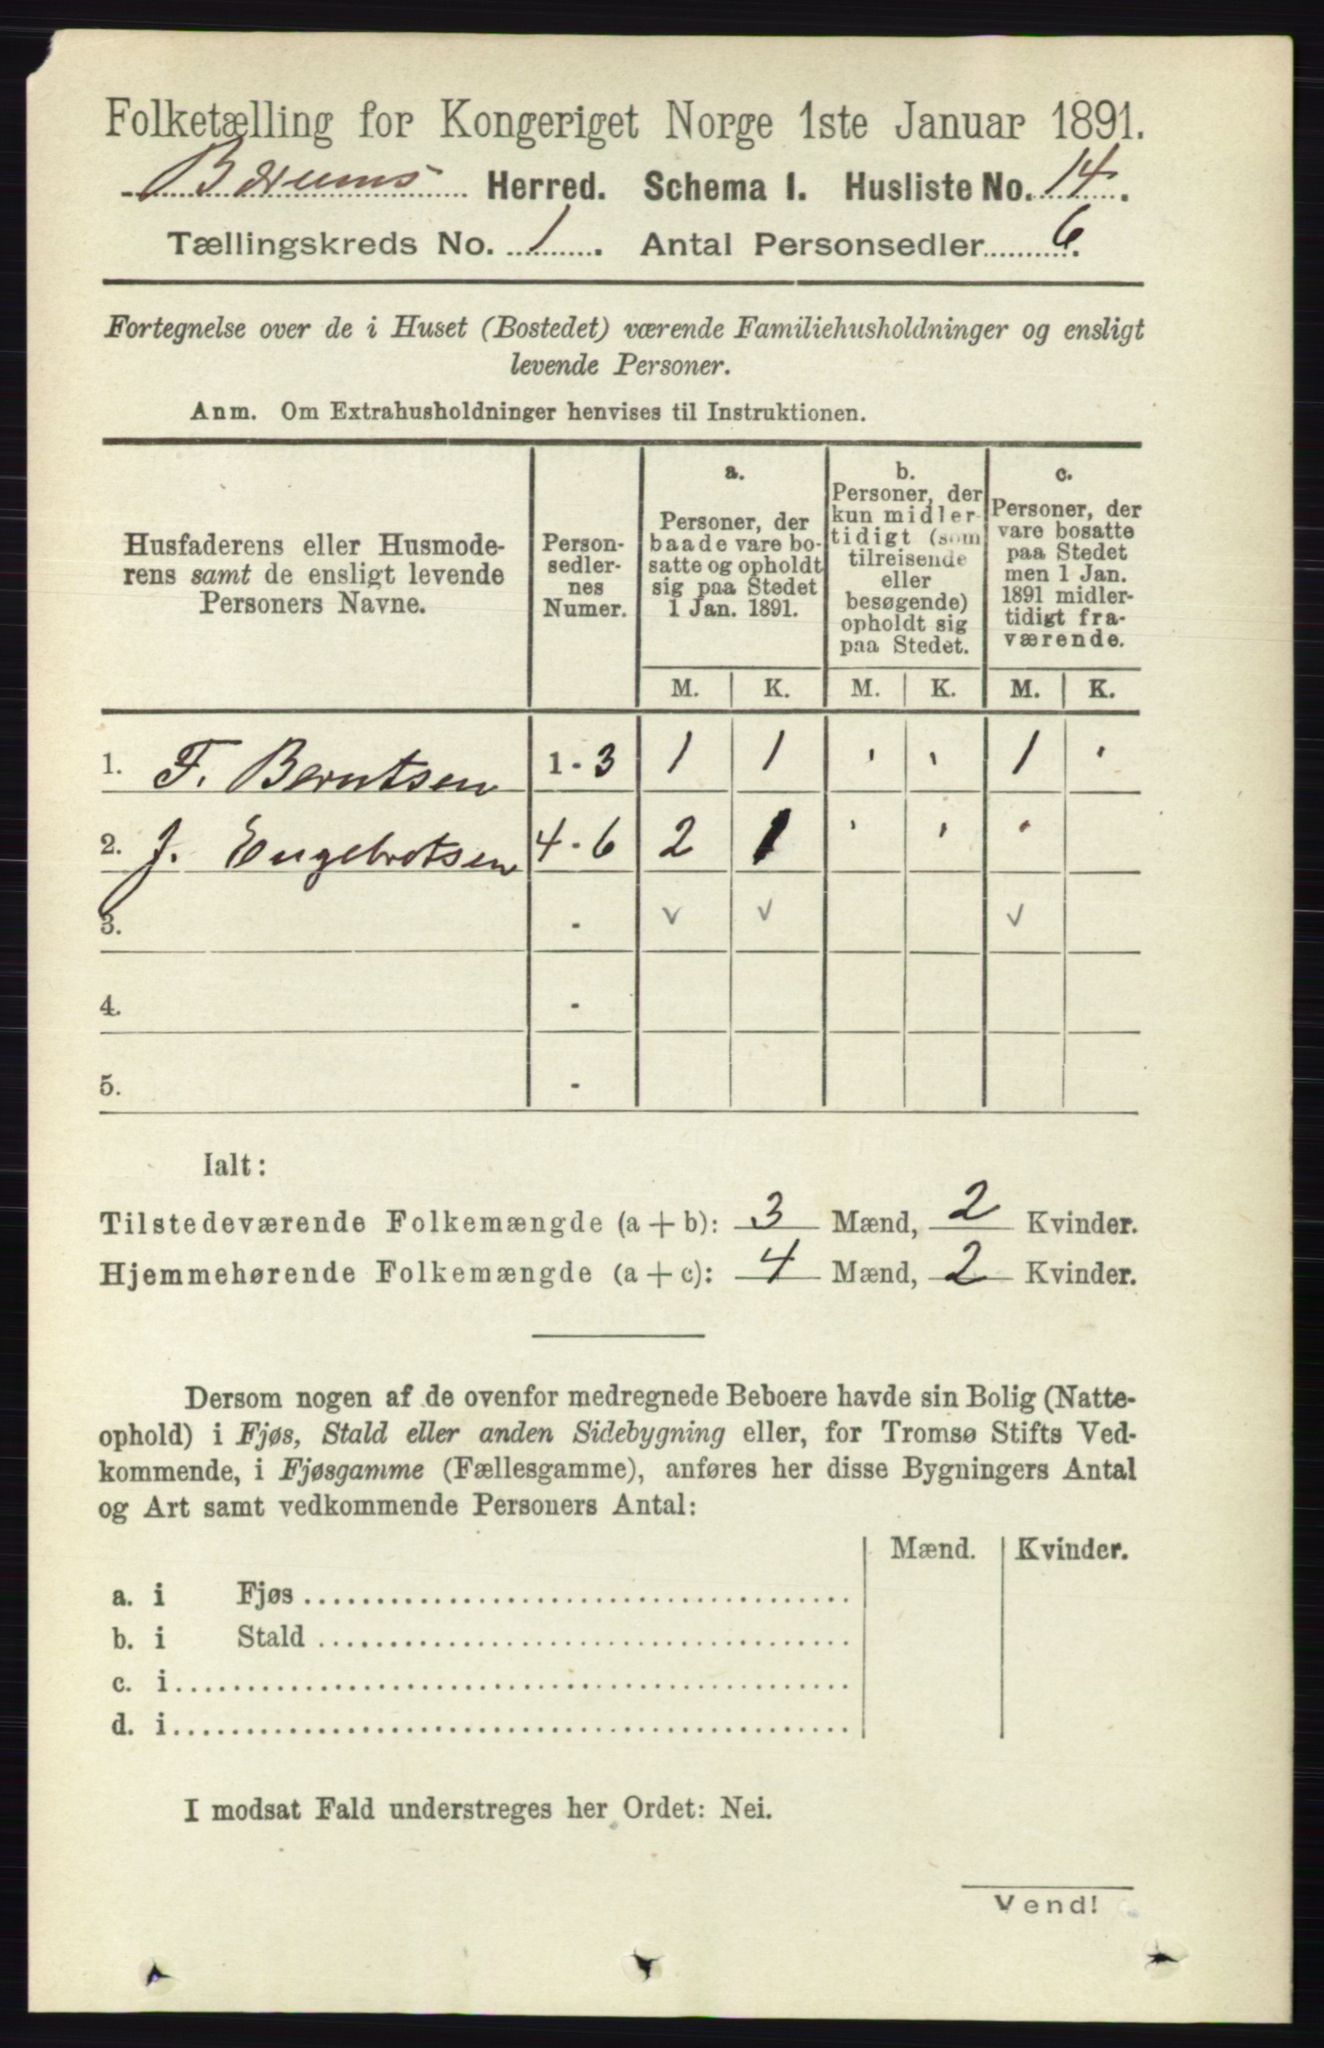 Folketælling for Kongeriget Norge 1ste Januar 1891.
Bærums Herred. Schema I. Husliste No. 14.
Tællingskreds No. 1. Antal Personsedler 6.
Fortegnelse over de i Huset (Bostedet) værende Familiehusholdninger og ensligt
levende Personer.
Anm. Om Extrahusholdninger henvises til Instruktionen.
Husfaderens eller Husmode-
rens samt de ensligt levende
Personers Navne.
Person-
sedler-
nes
Numer.
a.
Personer, der
baade vare bo-
satte og opholdt
sig paa Stedet
1 Jan. 1891.
b.
Personer, der
kun midler-
tidigt (som
tilreisende
eller
besøgende)
opholdt sig
paa Stedet.
c.
Personer, der
vare bosatte
paa Stedet
men 1 Jan.
1891 midler-
tidigt fra-
værende.
M. K. M. K. M. K.
1. F. Berntsen 1 - 3 1 1 1
2. J. Engebretsen 4 - 6 2 1
3. - ✓ ✓ ✓
4. -
5. -
Ialt:
Tilstedeværende Folkemængde (a + b): 3 Mænd, 2 Kvinder.
Hjemmehørende Folkemængde (a + c): 4 Mænd, 2 Kvinder.
Dersom nogen af de ovenfor medregnede Beboere havde sin Bolig (Natte-
ophold) i Fjøs, Stald eller anden Sidebygning eller, for Tromsø Stifts Ved-
kommende, i Fjøsgamme (Fællesgamme), anføres her disse Bygningers Antal
og Art samt vedkommende Personers Antal:
Mænd. Kvinder.
a. i Fjøs
b. i Stald
c. i
d. i
I modsat Fald understreges her Ordet: Nei.
Vend!